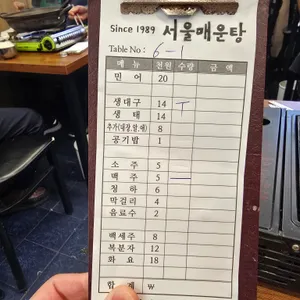 Since 1989 서울매운탕
Table No : 6-1
메 뉴 천원 수량 금 액
민 어 20
생대구 14 T
생 태 14
추가(내장,알,채) 8
공기밥 1
소 주 5
맥 주 5 —
청 하 6
막걸리 4
음료수 2
백세주 8
복분자 12
화 요 18
합 계 ₩